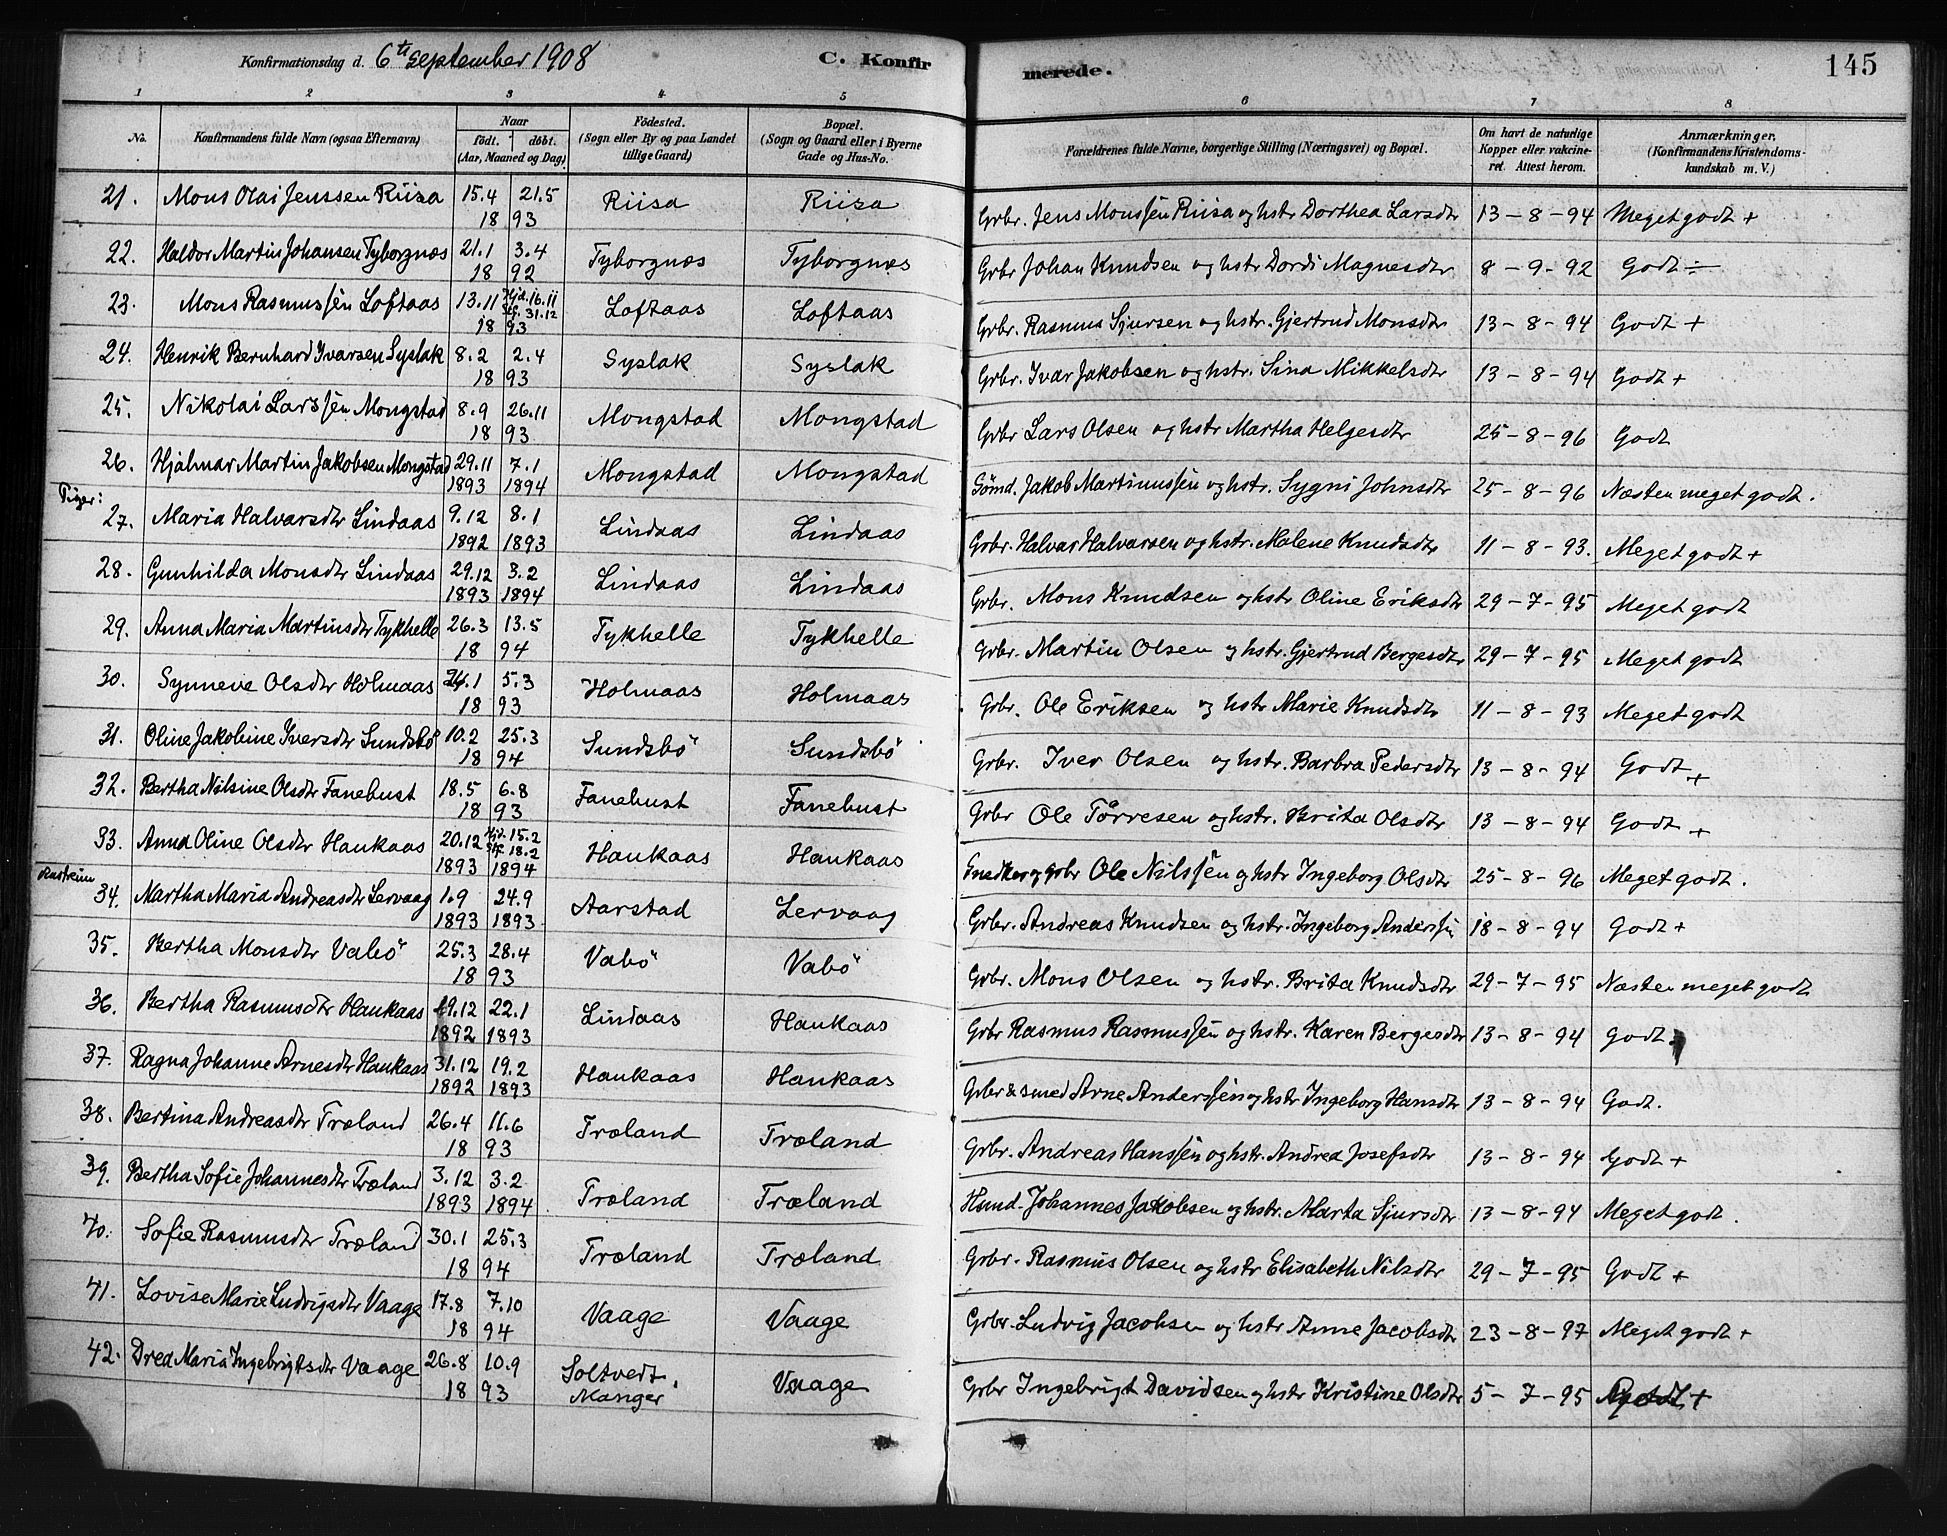 Konfirmationsdag d. 6te september 1908 C. Konfir merede. 145
1 2 3 4 5 6 7 8
No. Konfirmandens fulde Navn (ogsaa Efternavn) Naar födt. döbt. (Aar, Maaned og Dag) Födested. (Sogn eller By og paa Landet tillige Gaard) Bopæl. (Sogn og Gaard eller i Byerne Gade og Hus-No. Forældrenes fulde Navne, borgerlige Stilling (Næringsvei) og Bopæl. Om havt de naturlige Kopper eller vakcineret. Attest herom. Anmærkninger. (Konfirmandens Kristendomskundskab m. V.)
21. Mons Olai Jenssen Riisa 15.4 21.5 1893 Riisa Riisa Grbr. Jens Monssen Riisa og hstr Dorthea Larsdtr 13-8-94 Meget godt +
22. Haldor Martin Johansen Tyborgnæs 21.1 3.4 1892 Tyborgnæs Tyborgnæs Grbr Johan Knudsen og hstr Dordi Magnesdtr 8-9-92 Godt ÷
23. Mons Rasmussen Loftaas 13.11 Hjd. 16.11 Stf. 31.12 1893 Loftaas Loftaas Grbr. Rasmus Sjursen og hstr. Gjertrud Monsdtr 13-8-94 Godt +
24. Henrik Bernhard Ivarsen Syslak 8.2 2.4 1893 Syslak Syslak Grbr. Ivar Jakobsen og hstr. Sina Mikkelsdtr 13-8-94 Godt +
25. Nikolai Larssen Mongstad 8.9 26.11 1893 Mongstad Mongstad Grbr Lars Olsen og hstr Martha Helgesdtr 25-8-96 Godt
26. Hjalmar Martin Jakobsen Mongstad 29.11 1893 7.1 1894 Mongstad Mongstad Sömd. Jakob Martinussen og hstr. Sygni Johnsdtr 25-8-96 Næsten meget godt.
Piger:
27. Maria Halvarsdtr Lindaas 9.12 1892 8.1 1893 Lindaas Lindaas Grbr. Halvar Halvarsen og hstr. Malene Knudsdtr 11-8-93. Meget godt +
28. Gunhilda Monsdtr Lindaas 29.12 1893 3.2 1894 Lindaas Lindaas Grbr. Mons Knudsen og hstr Oline Eriksdtr 29-7-95 Meget godt
29. Anna Maria Martinsdtr Tykhelle 26.3 13.5 1894 Tykhelle Tykhelle Grbr. Martin Olsen og hstr. Gjertrud Bergesdtr 29-7-95 Meget godt
30. Synneve Olsdtr Holmaas 24.1 5.3 1893 Holmaas Holmaas Grbr. Ole Eriksen og hstr Marie Knudsdtr 11-8-93 Meget godt
31. Oline Jakobine Iversdtr Sundsbö 10.2 25.3 1894 Sundsbö Sundsbö Grbr. Iver Olsen og hstr. Barbra Pedersdtr 13-8-94 Godt +
32. Bertha Nilsine Olsdtr Fanebust 18.5 6.8 1893 Fanebust Fanebust Grbr Ole Törresen og hstr. Brita Olsdtr 13-8-94 Godt +
33. Anna Oline Olsdtr Haukaas 20.12 1893 Hjd. 15.2 Stf. 18.2 1894 Haukaas Haukaas Snedker og grbr Ole Nilssen og hstr Ingeborg Olsdtr 25-8-96 Meget godt.
34. Martha Maria Andreasdtr Lervaag 1.9 1893 24.9 1893 Aarstad Lervaag Grbr. Andreas Knudsen og hstr. Ingeborg Anderssen 18-8-94 Godt +
35. Bertha Monsdtr Vabö 25.3 28.4 1893 Vabö Vabö Grbr. Mons Olsen og hstr. Brita Knudsdtr 29-7-95 Næsten meget godt
36. Bertha Rasmusdtr Haukaas 19.12 1892 22.1 1893 Lindaas Haukaas Grbr Rasmus Rasmussen og hstr. Karen Bergesdtr 13-8-94 Godt
37. Ragna Johanne Arnesdtr Haukaas 31.12 1892 19.2 1893 Haukaas Haukaas Grbr & smed Arne Anderssen og hstr Ingeborg Hansdtr 13-8-94 Godt.
38. Bertina Andreasdtr Træland 26.4 11.6 1893 Træland Træland Grbr. Andreas Hanssen og hstr. Andrea Josefsdtr 13-8-94 Godt +
39. Bertha Sofie Johannesdtr Træland 3.12 1893 3.2 1894 Træland Træland Husmd. Johannes Jakobsen og hstr. Marta Sjursdtr 13-8-94 Meget godt.
40. Sofie Rasmusdtr Træland 30.1 25.3 1894 Træland Træland Grbr. Rasmus Olsen og hstr Elisabeth Nilsdtr 29-7-95 Godt +
41. Lovise Marie Ludvigsdtr Vaage 17.8 7.10 1894 Vaage Vaage Grbr. Ludvig Jacobsen og hstr Anne Jacobsdtr 23-8-97 Meget godt +
42. Drea Maria Ingebrigtsdtr Vaage 26.8 10.9 1893 Soltvedt, Manger Vaage Grbr Ingebrigt Davidsen og hstr Kristine Olsdtr 5-7-95 +